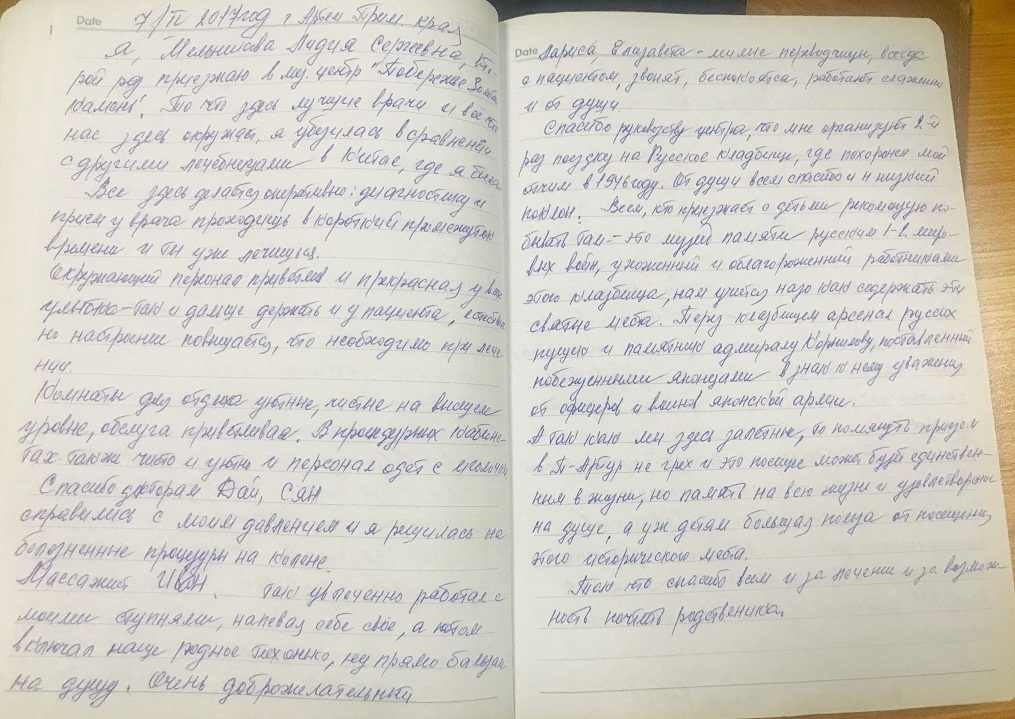 Date 7/II 2017 год г. Артем Прим. край
Я, Мельникова Лидия Сергеевна, 
рой год приезжаю в мед. центр "Побережье Золотой
камень". То что здесь лучшие врачи и всё что
нас здесь окружает, я убедилась в сравнении
с другими лечебницами в Китае, где я была
Все здесь делается оперативно: диагностику и
прием у врача проходишь в короткий промежуток
времени и ты уже лечишься.
Окружающий персонал приветлив и прекрасная у всех
улыбка - так и дальше держать и у пациента, естествен
но настроение повышается, что необходимо при лече-
нии.
Комнаты для отдыха уютные, чистые на высшем
уровне, обслуга приветливая. В процедурных кабине-
тах также чисто и уютно и персонал одет с иголочки.
Спасибо докторам Дай, Сян
справились с моим давлением и я решилась на
болезненные процедуры на колене.
Массажист Иван. Так увлеченно работал с
моими ступнями, напевая себе своё, а потом
включал наше родное тихонько, ну прямо бальзам
на душу. Очень доброжелательный
Date Лариса, Елизавета - милые переводчицы, всегда
с пациентом, звонят, беспокоятся, работают слаженно
и от души.
Спасибо руководству центра, что мне организуют 2-й
раз поездку на Русское кладбище, где похоронен мой
отчим в 1946 году. От души всем спасибо и низкий
поклон. Всем, кто приезжает с детьми рекомендую по-
бывать там - это музей памяти русским 1-2 миро-
вых войн, ухоженный и облагороженный работниками
этого кладбища, нам учится надо как содержать эти
святые места. Перед кладбищем арсенал русских
пушек и памятник адмиралу Корнилову, поставленный
побежденными японцами в знак к нему уважения
от офицеров и воинов японской армии.
А так как мы здесь залетные, то помянуть придом
в П-Артур не грех и это посещ. может будет единствен-
ным в жизни, но память на всю жизнь и удовлетворение
на душе, а уж детям большая польза от посещения
этого исторического места.
Так что спасибо всем и за лечение и за возмож-
ность почтить родственника.